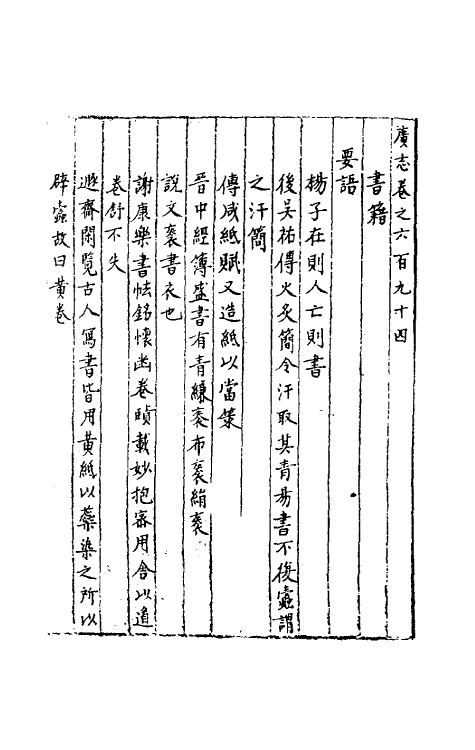 廣志卷之六百九十四
書籍
要語
楊子在則人亡則書
後吳祐傳火炙簡令汗取其青易書不復蠹謂
之汗簡
傅咸紙賦又造紙以當策
晉中經簿盛書有青縑袠布袠絹袠
說文袠書衣也
謝康樂書帙銘懷幽卷賾載妙抱密用舍以道
卷舒不失
遯齋閑覽古人寫書皆用黃紙以蘗染之所以
辟蠹故曰黃卷